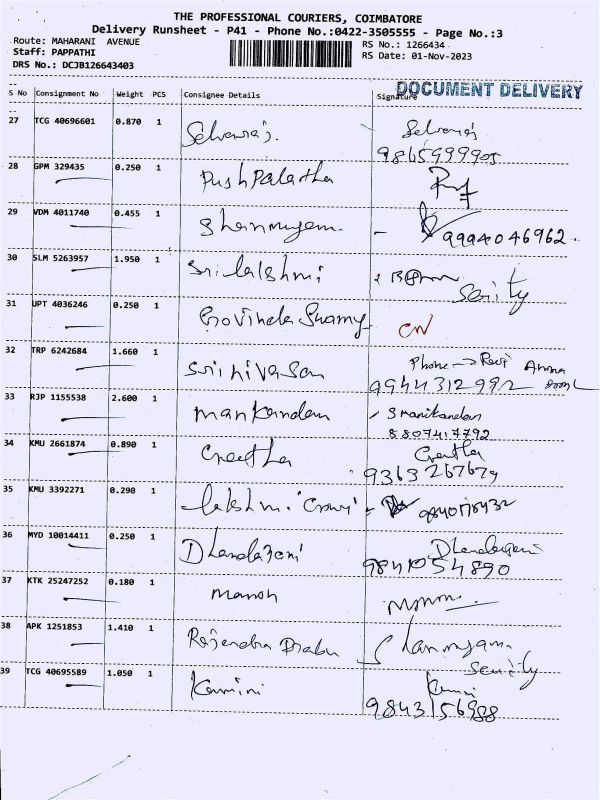 THE PROFESSIONAL COURIERS, COIMBATORE
Delivery Runsheet - P41 - Phone No.:0422-3505555 - Page No.:3
Route: MAHARANI AVENUE
RS No.: 1266434
Staff: PAPPATHI
RS Date: 01-Nov-2023
DRS No.: DCJB126643403
DOCUMENT DELIVERY
S No Consignment No Weight PCS Consignee Details Signature
27 TCG 40696601 0.870 1 Selvaraj. Selvaraj
9865999905
28 GPM 329435 0.250 1 Pushpalatha
29 VDM 4011740 0.455 1 Shanmugam - 9994046962.
30 SLM 5263957 1.950 1 Srilakshmi
Serity
31 UPT 4036246 0.250 1 Govinda Swamy CN
32 TRP 6242684 1.660 1 Srinivasan Phone → Ravi Anna
9944312992
33 RJP 1155538 2.600 1 Manikandan S Manikandan
8807417792
34 KMU 2661874 0.890 1 Geetha Geetha
9363267679
35 KMU 3392271 0.290 1 Lakshmi
36 MYD 10014411 0.250 1 Dhandapani Dhandapani
9841054890
37 KTK 25247252 0.180 1 Manoh
38 APK 1251853 1.410 1 Rajendra Prabu Shanmugam
Serity
39 TCG 40695589 1.050 1 Kamini Kamini
9843156988